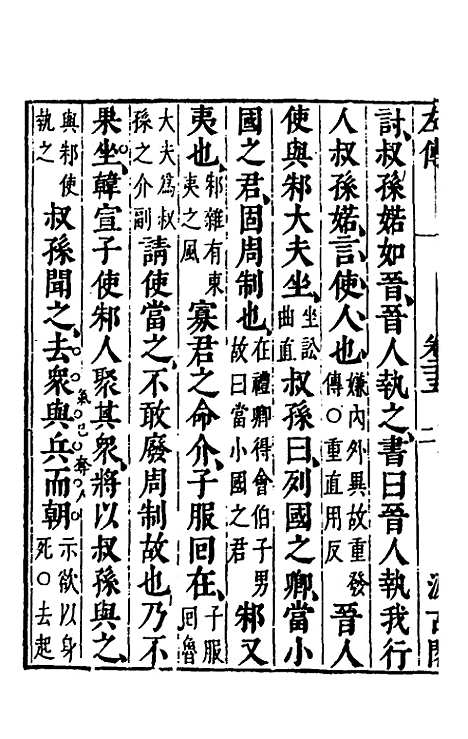 左傳 卷二十五 二
討叔孫婼如晉晉人執之書曰晉人執我行
人叔孫婼言使人也嫌內外異故重發傳○重直用反晉人
使與邾大夫坐坐訟曲直叔孫曰列國之卿當小
國之君固周制也在禮卿得會伯子男故曰當小國之君邾又
夷也邾雜有東夷之風寡君之命介子服回在子服回魯
大夫爲叔孫之介副請使當之不敢廢周制故也乃不
果坐韓宣子使邾人聚其衆將以叔孫與之
與邾使執之叔孫聞之去衆與兵而朝示欲以身死○去起